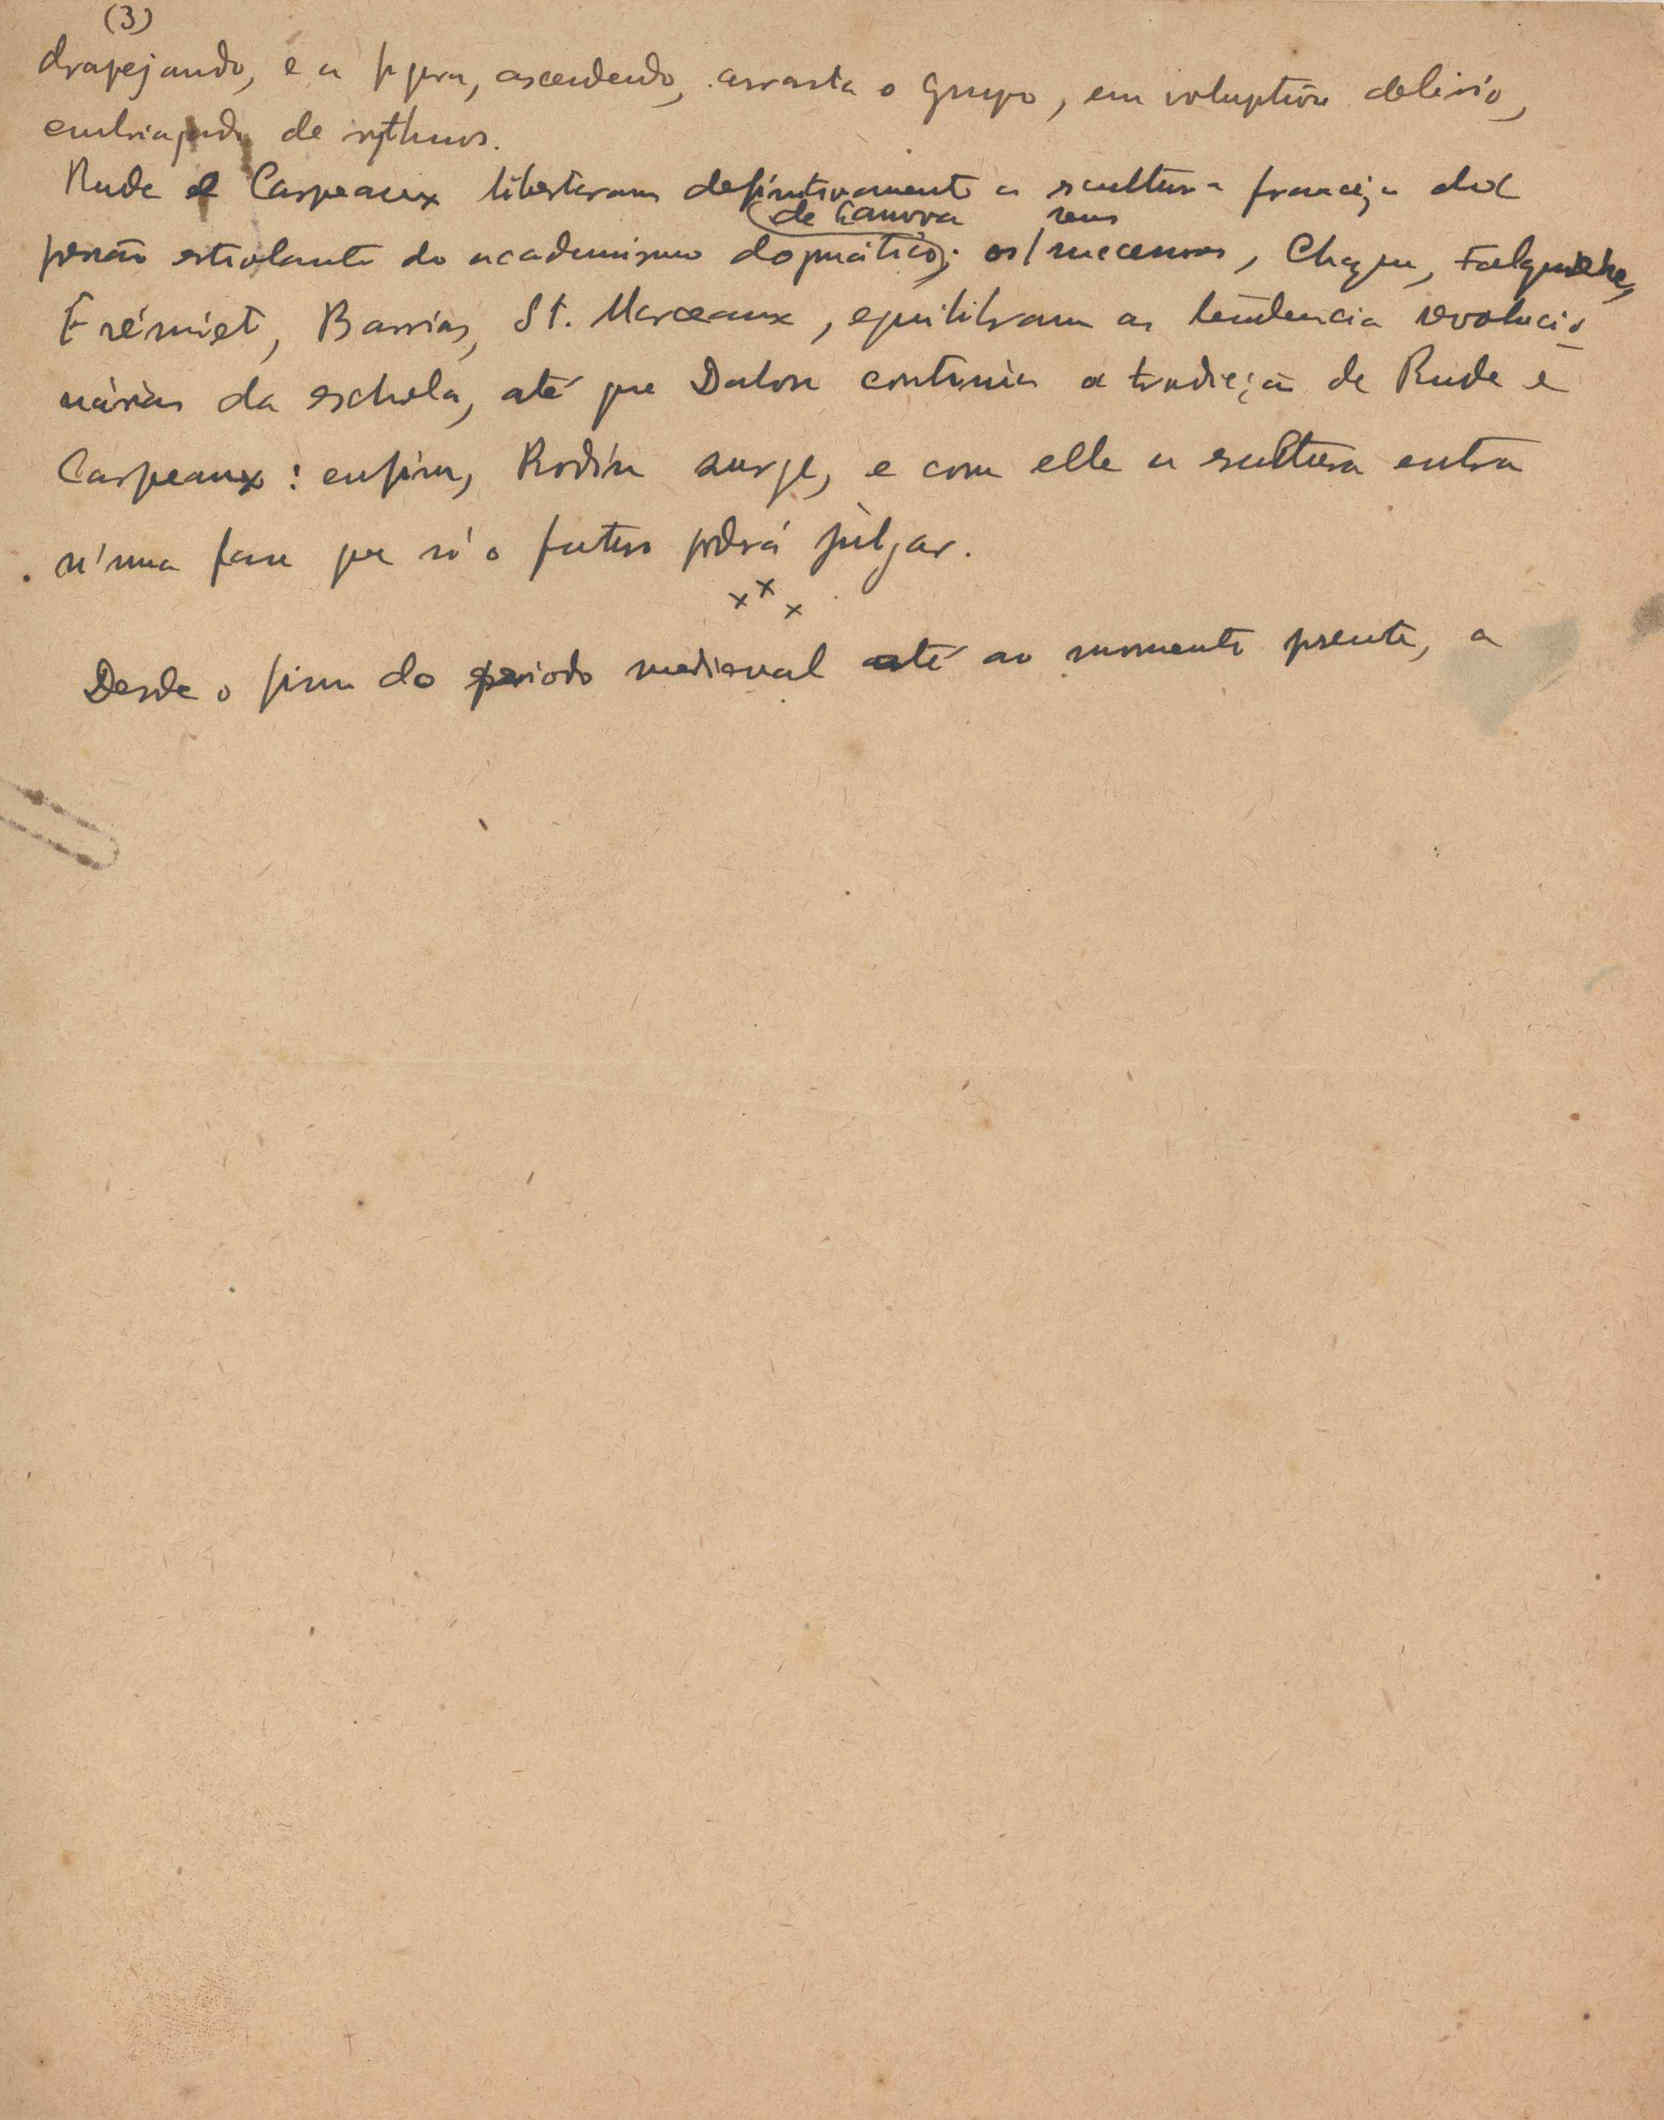 (3)
drapejando, e a figura, ascendendo, arrasta o grupo, em voluptuoso delirio,
embriagado de rythmos.
Rude e Carpeaux libertaram definitivamente a scultura franceza da
pressão estiolante do academismo dogmático de Canova; os seus successores, Chapu, Falguière,
Frémiet, Barrias, St. Marceaux, equilibram as tendencia revolucio-
nárias da eschola, até que Dalou continúa a tradicção de Rude e
Carpeaux: enfim, Rodin surge, e com elle a scultura entra
n'uma fase que só o futuro poderá julgar.
x x x
Desde o fim do periodo medieval até ao momento presente, a